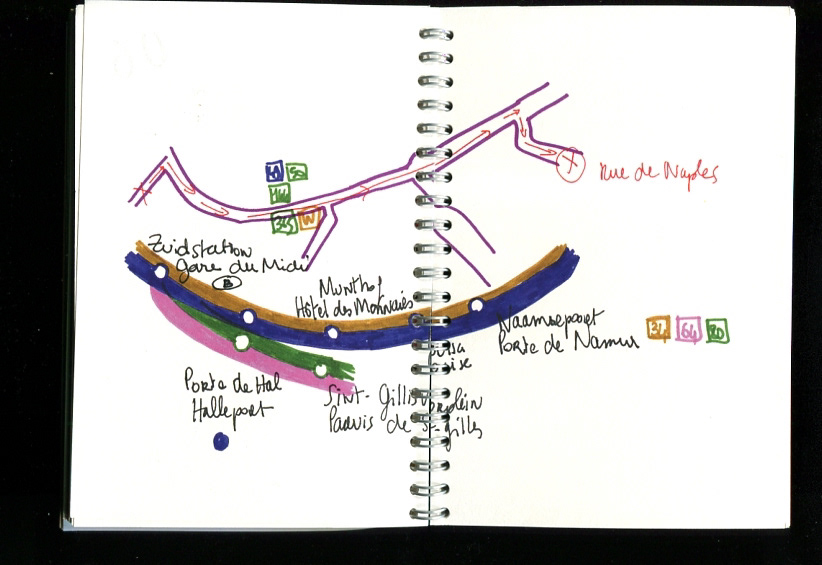 50
Rue de Naples
Zuidstation
Gare du Midi
B
Munthof
Hôtel des Monnaies
Naamsepoort
Porte de Namur
34 64 80
Porte de Hal
Halleport
Sint-Gillis
Parvis de St-Gilles